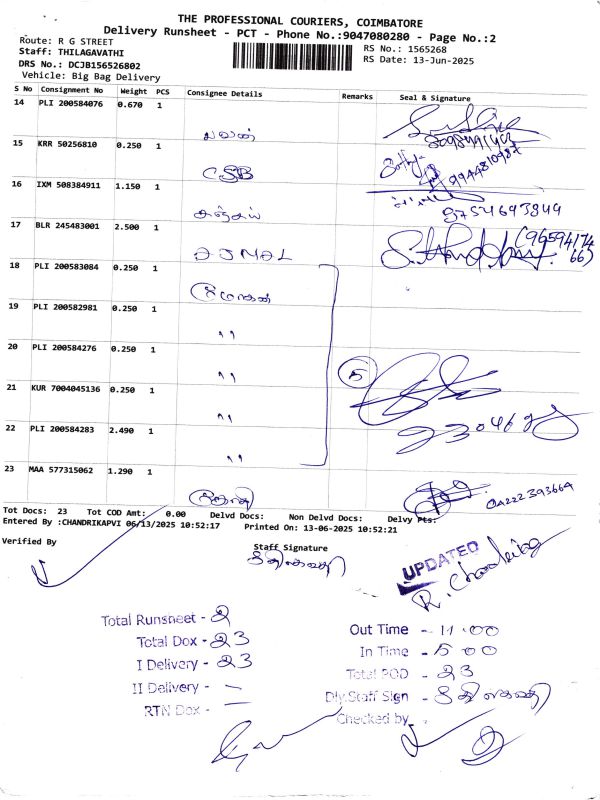 THE PROFESSIONAL COURIERS, COIMBATORE
Delivery Runsheet - PCT - Phone No.:9047080280 - Page No.:2
Route: R G STREET
RS No.: 1565268
Staff: THILAGAVATHI
RS Date: 13-Jun-2025
DRS No.: DCJB156526802
Vehicle: Big Bag Delivery
S No Consignment No Weight PCS Consignee Details Remarks Seal & Signature
14 PLI 200584076 0.670 1
15 KRR 50256810 0.250 1
CSB
16 IXM 508384911 1.150 1
9754693844
17 BLR 245483001 2.500 1
AJMAL
(9659417466)
18 PLI 200583084 0.250 1
19 PLI 200582981 0.250 1
"
20 PLI 200584276 0.250 1
"
21 KUR 7004045136 0.250 1
"
5
22 PLI 200584283 2.490 1
"
23 MAA 577315062 1.290 1
Tot Docs: 23 Tot COD Amt: 0.00 Delvd Docs: Non Delvd Docs: Delvy Pts:
Entered By :CHANDRIKAPVI 06/13/2025 10:52:17 Printed On: 13-06-2025 10:52:21
Verified By
Staff Signature
UPDATED
Total Runsheet - 2
Total Dox - 23
I Delivery - 23
II Delivery - —
RTN Dox - —
Out Time - 11.00
In Time - 5.00
Total POD - 23
Dly.Staff Sign -
Checked by -